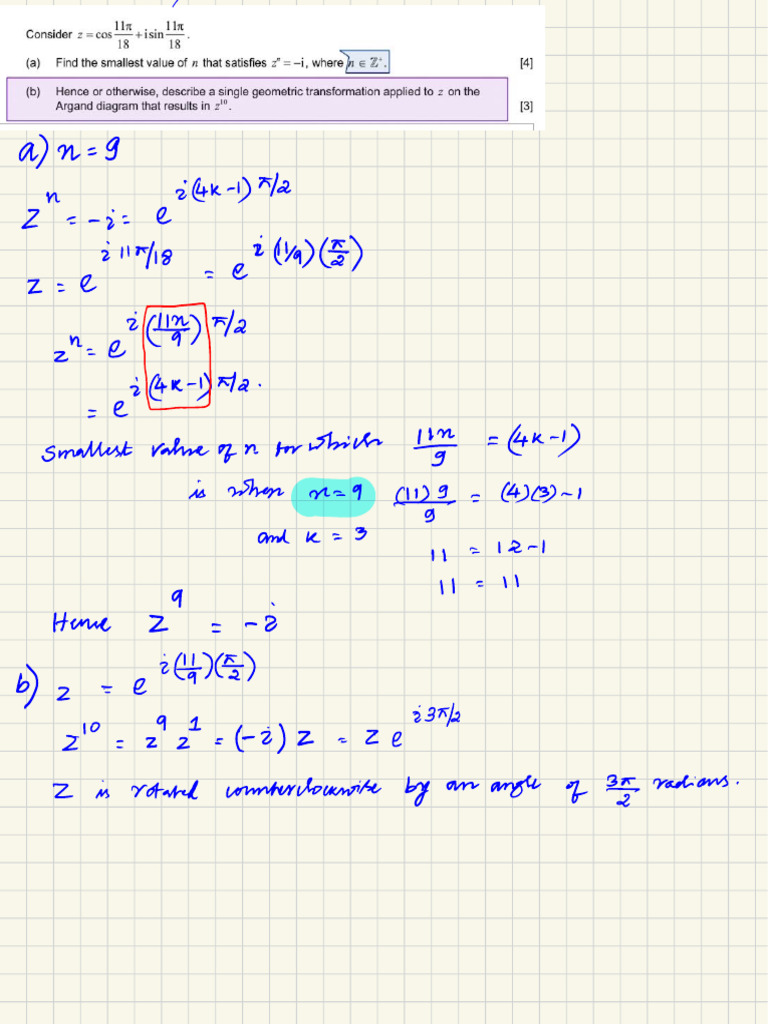 Consider z = cos 11π/18 + i sin 11π/18 .
(a) Find the smallest value of n that satisfies zⁿ = −i, where n ∈ ℤ⁺. [4]
(b) Hence or otherwise, describe a single geometric transformation applied to z on the
Argand diagram that results in z¹⁰. [3]
a) n = 9
zⁿ = -i = e^{i(4k-1)π/2}
z = e^{i11π/18} = e^{i(11/9)(π/2)}
zⁿ = e^{i(11n/9)π/2}
= e^{i(4k-1)π/2}.
Smallest value of n for which 11n/9 = (4k-1)
is when n=9 (11)9/9 = (4)(3)-1
and k = 3
11 = 12-1
11 = 11
Hence z⁹ = -i
b) z = e^{i(11/9)(π/2)}
z¹⁰ = z⁹ z¹ = (-i) z = z e^{i3π/2}
z is rotated counterclockwise by an angle of 3π/2 radians.